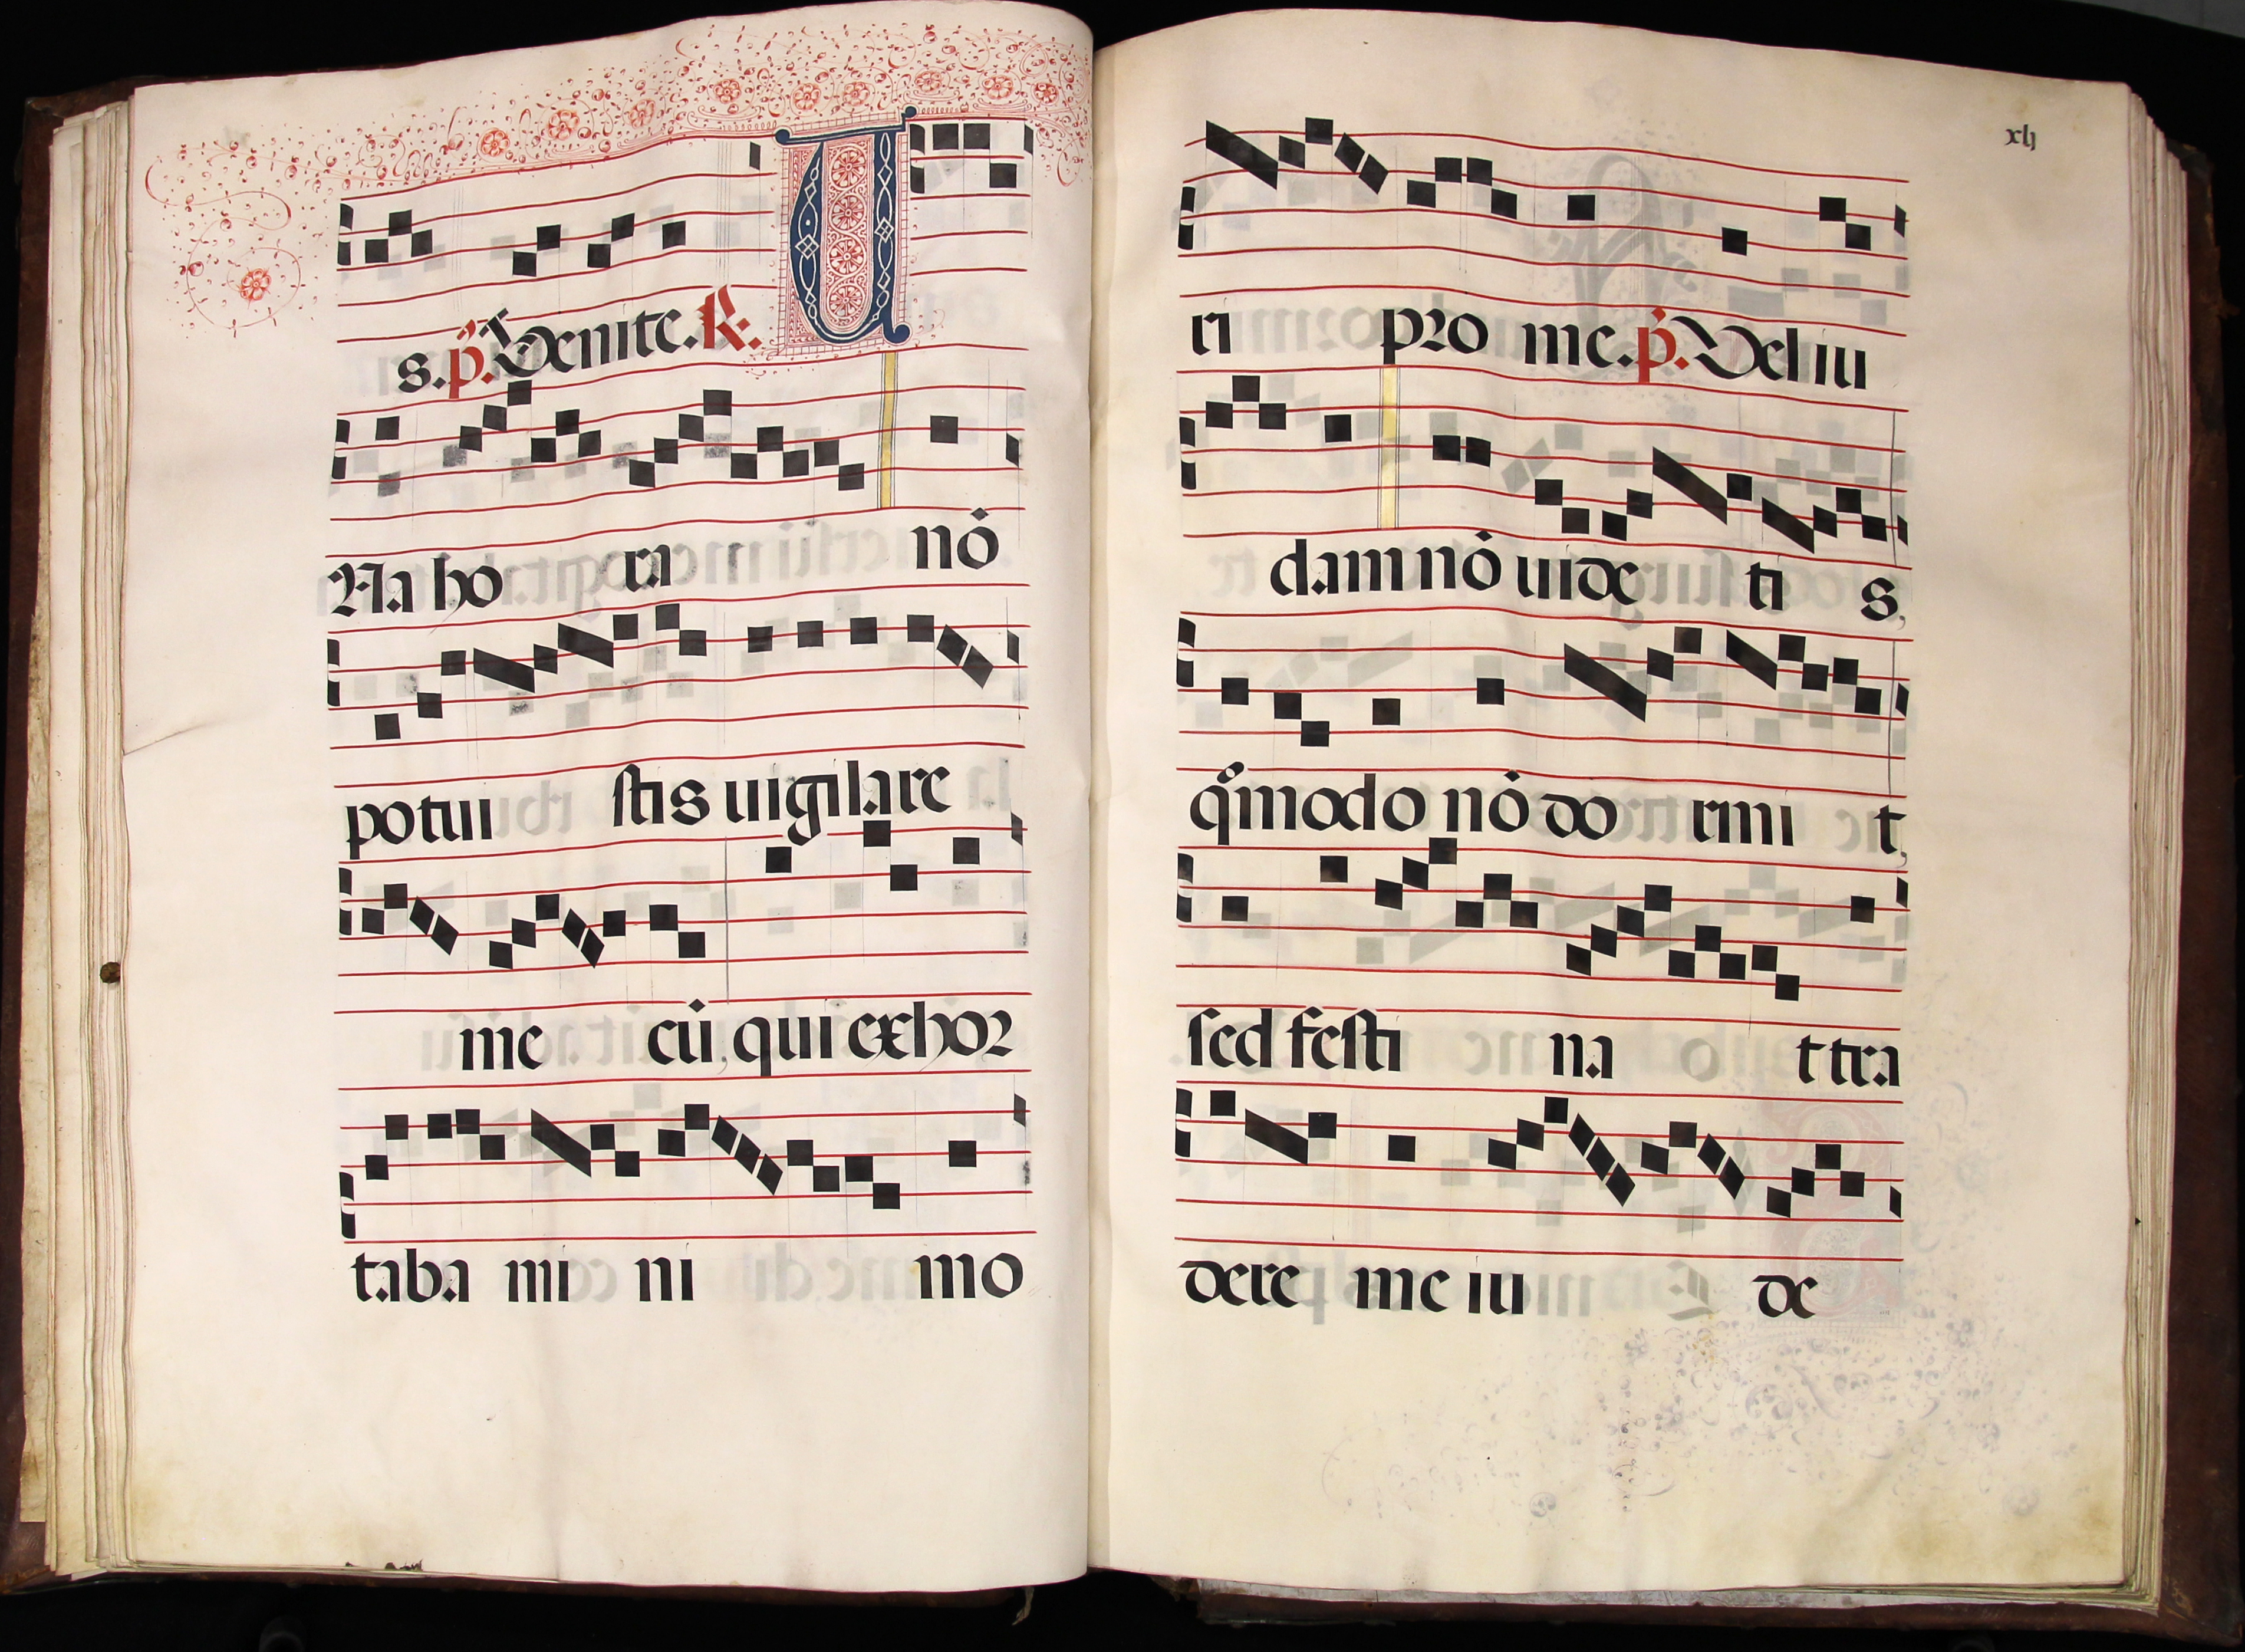 s. p̃. Venite. R. U
Na ho ra nō
potui stis uigilare
me cū, qui exhor
taba mi ni mo
xlj
ri pro me. p̃. Vel iu
dam nō uide ti s,
qͦmodo nō do rmi t,
sed festi na t tra
dere me iu de